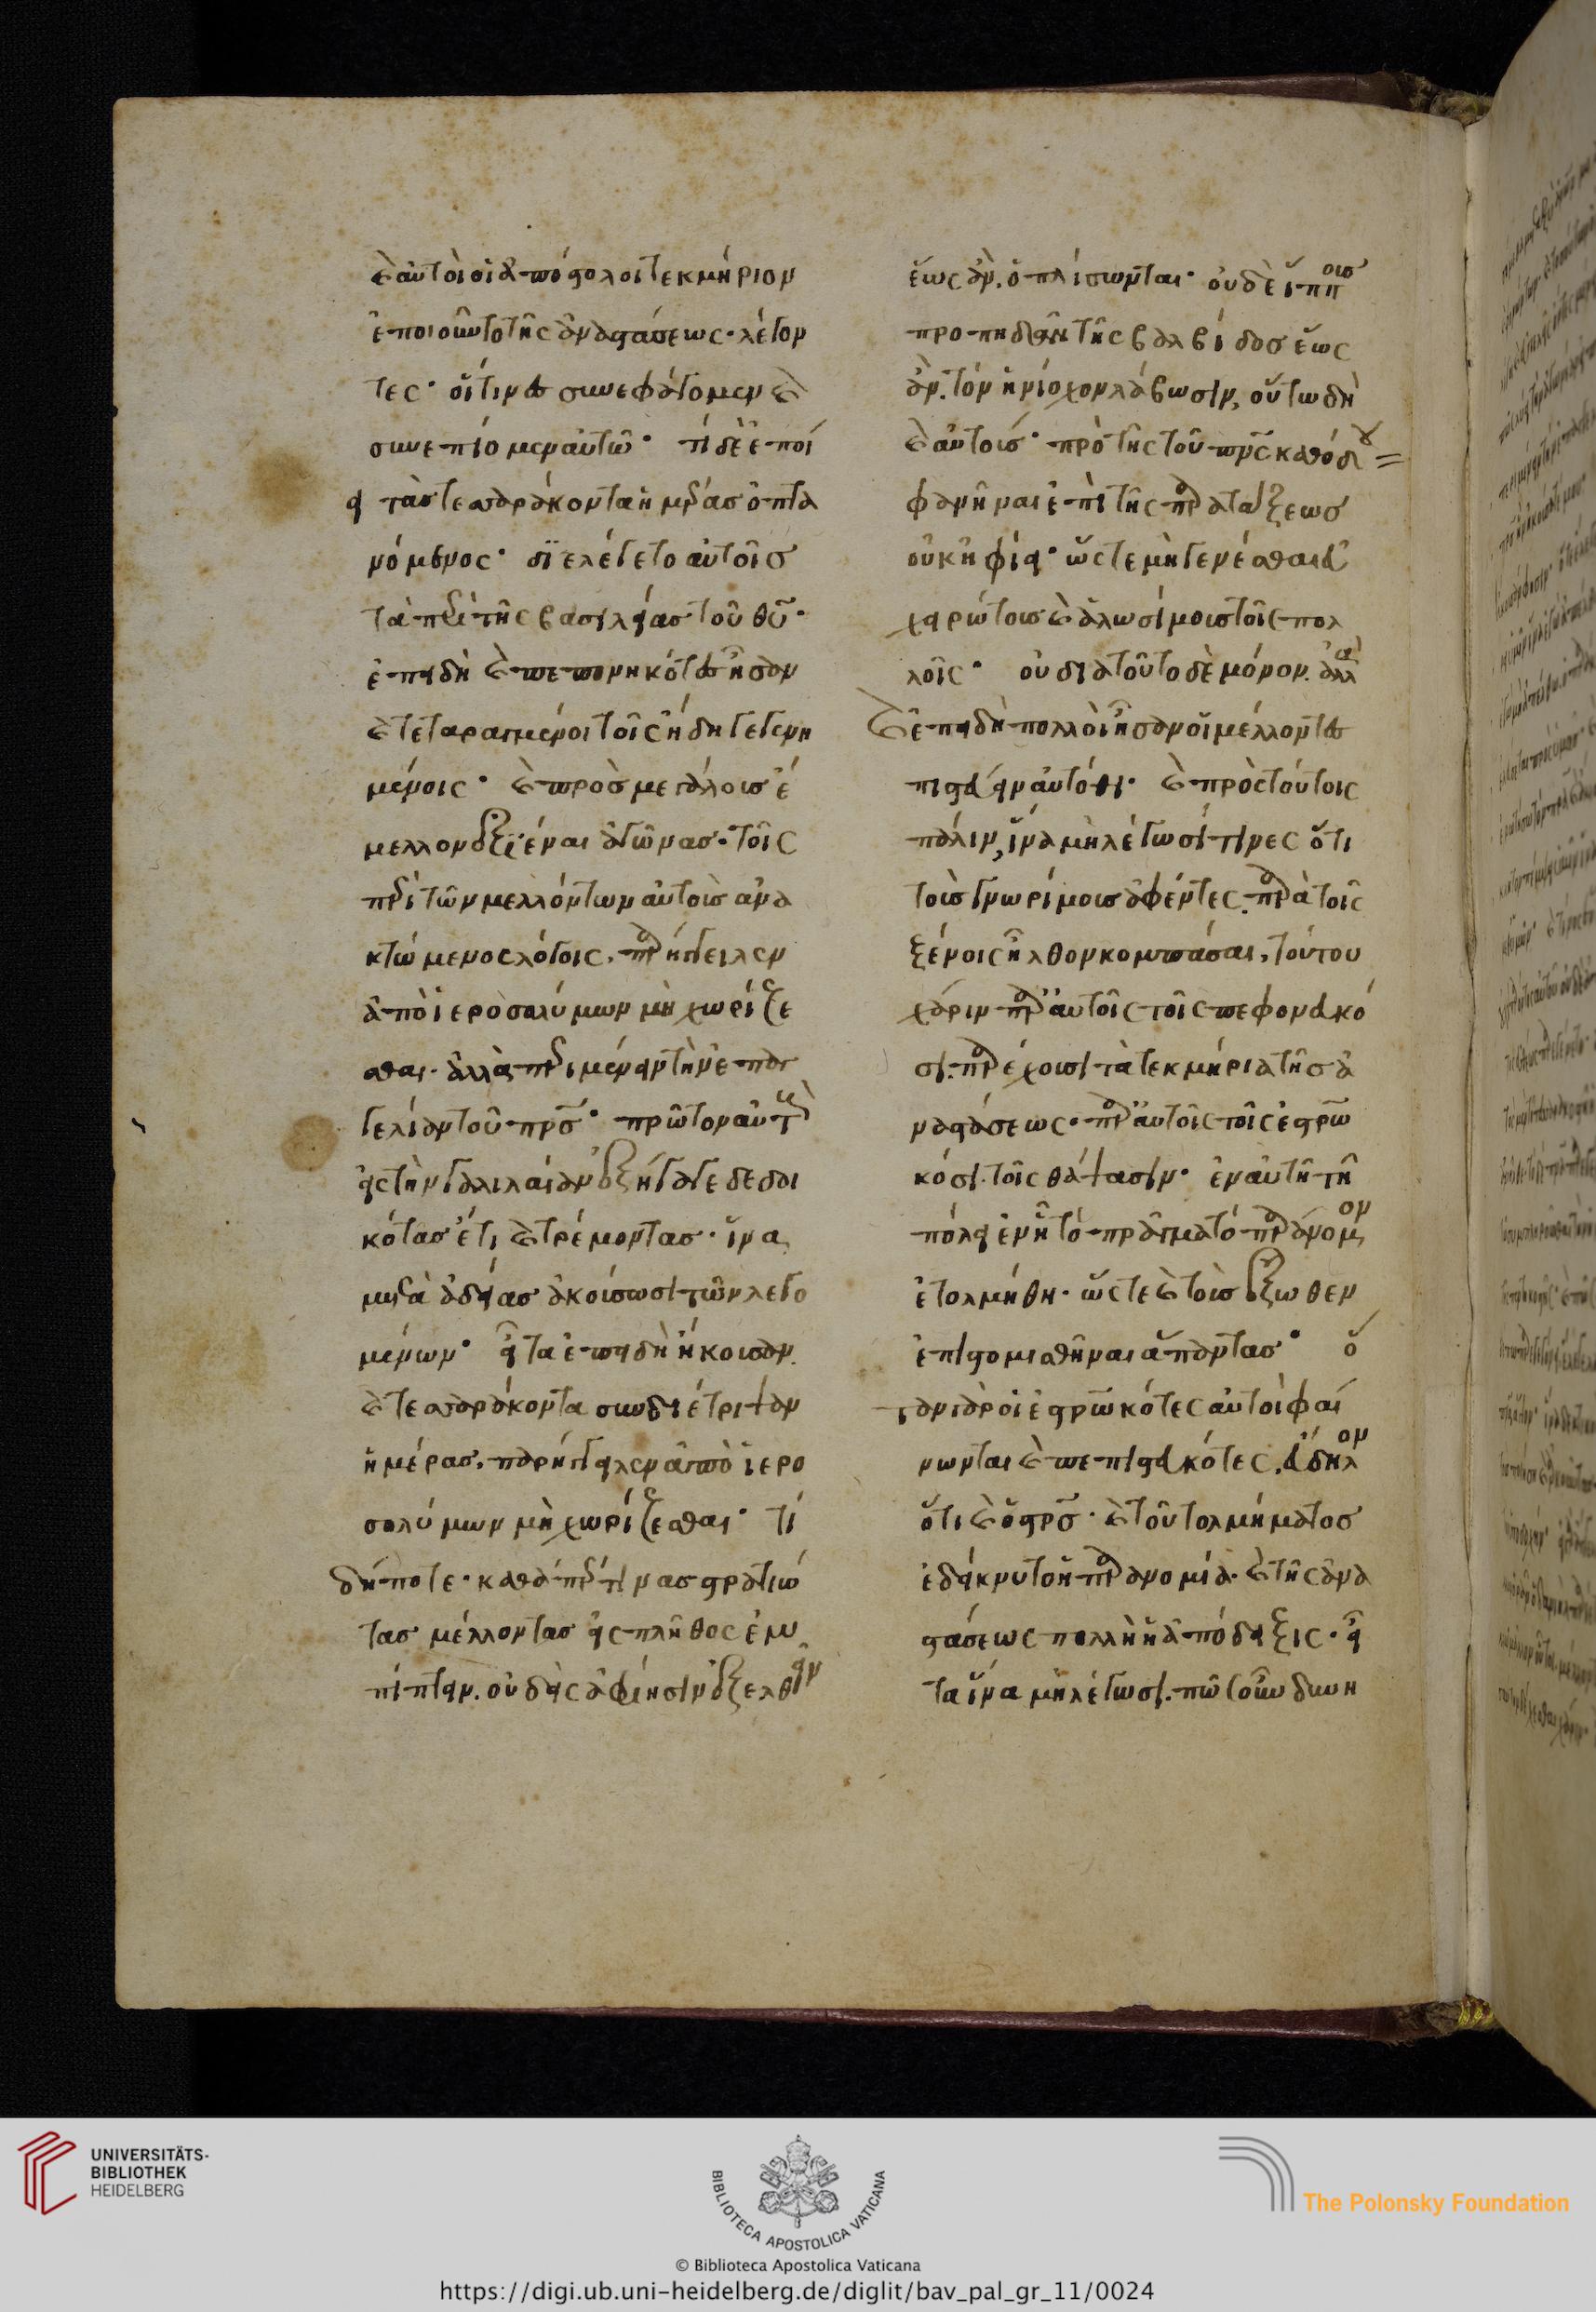 καὶ αὐτοὶ οἱ ἀπόστολοι τεκμήριον
ἐποιοῦντο τῆς ἀναστάσεως· λέγον
τες· οἵτινες συνεφάγομεν καὶ
συνεπίομεν αὐτῶ· τί δὲ ἐποί
ει τὰς τεσσαράκοντα ἡμέρας ὀπτα
νόμενος· διελέγετο αὐτοῖς
τὰ περὶ τῆς βασιλείας τοῦ θυ·
ἐπειδὴ καὶ πεπονηκότες ἦσαν
καὶ τεταραγμένοι τοῖς ἤδη γεγενη
μένοις· καὶ πρὸς μεγάλους ἔ
μελλον ἐξιέναι ἀγῶνας· τοῖς
περὶ τῶν μελλόντων αὐτοὺς ἀνα
κτώμενος λόγοις, παρήγγειλεν
ἀπὸ ἱεροσολύμων μὴ χωρίζε
σθαι· ἀλλὰ περιμένειν τὴν ἐπαγ
γελίαν τοῦ πρς· πρῶτον αὐτοὺς
εἰς τὴν γαλιλαίαν ἐξήγαγε δεδοι
κότας ἔτι καὶ τρέμοντας· ἵνα
μετὰ ἀδείας ἀκούσωσι τῶν λεγο
μένων· εἶτα ἐπειδὴ ἤκουσαν.
καὶ τεσσαράκοντα συνδιέτριψαν
ἡμέρας, παρήγγειλεν ἀπὸ ἱερο
σολύμων μὴ χωρίζεσθαι· τί
δήποτε· καθάπερ τινας στρατιώ
τας μέλλοντας εἰς πλῆθος ἐμ
πίπτειν. οὐδεὶς ἀφίησιν ἐξελθεῖν
ἕως ἂν. ὁπλίσωνται· οὐδὲ ἵππους
προπηδᾶν τῆς βαλβίδος ἕως
ἂν. τὸν ἡνίοχον λάβωσιν, οὕτω δὴ
καὶ αὐτοὺς πρὸ τῆς τοῦ πνς καθόδου
φανῆναι ἐπὶ τῆς παρατάξεως
οὐκ ἠφίει· ὥστε μὴ γενέσθαι εὐ
χειρώτους καὶ ἁλωσίμους τοῖς πολ
λοῖς· οὐ διατοῦτο δὲ μόνον. ἀλλὰ
καὶ ἐπειδὴ πολλοὶ ἦσαν οἱ μέλλοντες
πιστεύειν αὐτόθι· καὶ πρὸς τούτοις
πάλιν, ἵνα μὴ λέγωσί τινες ὅτι
τοὺς γνωρίμους ἀφέντες. παρὰ τοῖς
ξένοις ἦλθον κομπάσαι, τούτου
χάριν παρ' αὐτοῖς τοῖς πεφονευκό
σι. παρέχουσι τὰ τεκμήρια τῆς ἀ
ναστάσεως· παρ' αὐτοῖς τοῖς ἐστρω
κόσι. τοῖς θάψασιν· ἐν αὐτῆ τῆ
πόλει ἐν ἧ τὸ πρᾶγμα τὸ παράνομον
ἐτολμήθη· ὥστε καὶ τοὺς ἔξωθεν
ἐπιστομισθῆναι ἅπαντας· ὅ
ταν γὰρ οἱ ἐστρωκότες αὐτοὶ φαί
νωνται καὶ πεπιστευκότες, εὔδηλον
ὅτι καὶ ὁ στρς· καὶ τοῦ τολμήματος
ἐδείκνυτο ἡ παρανομία· καὶ τῆς ἀνα
στάσεως πολλὴ ἡ ἀπόδειξις· εἶ
τα ἵνα μὴ λέγωσι. πῶς οὖν δυνη
UNIVERSITÄTS-
BIBLIOTHEK
HEIDELBERG
BIBLIOTECA APOSTOLICA VATICANA
The Polonsky Foundation
© Biblioteca Apostolica Vaticana
https://digi.ub.uni-heidelberg.de/diglit/bav_pal_gr_11/0024